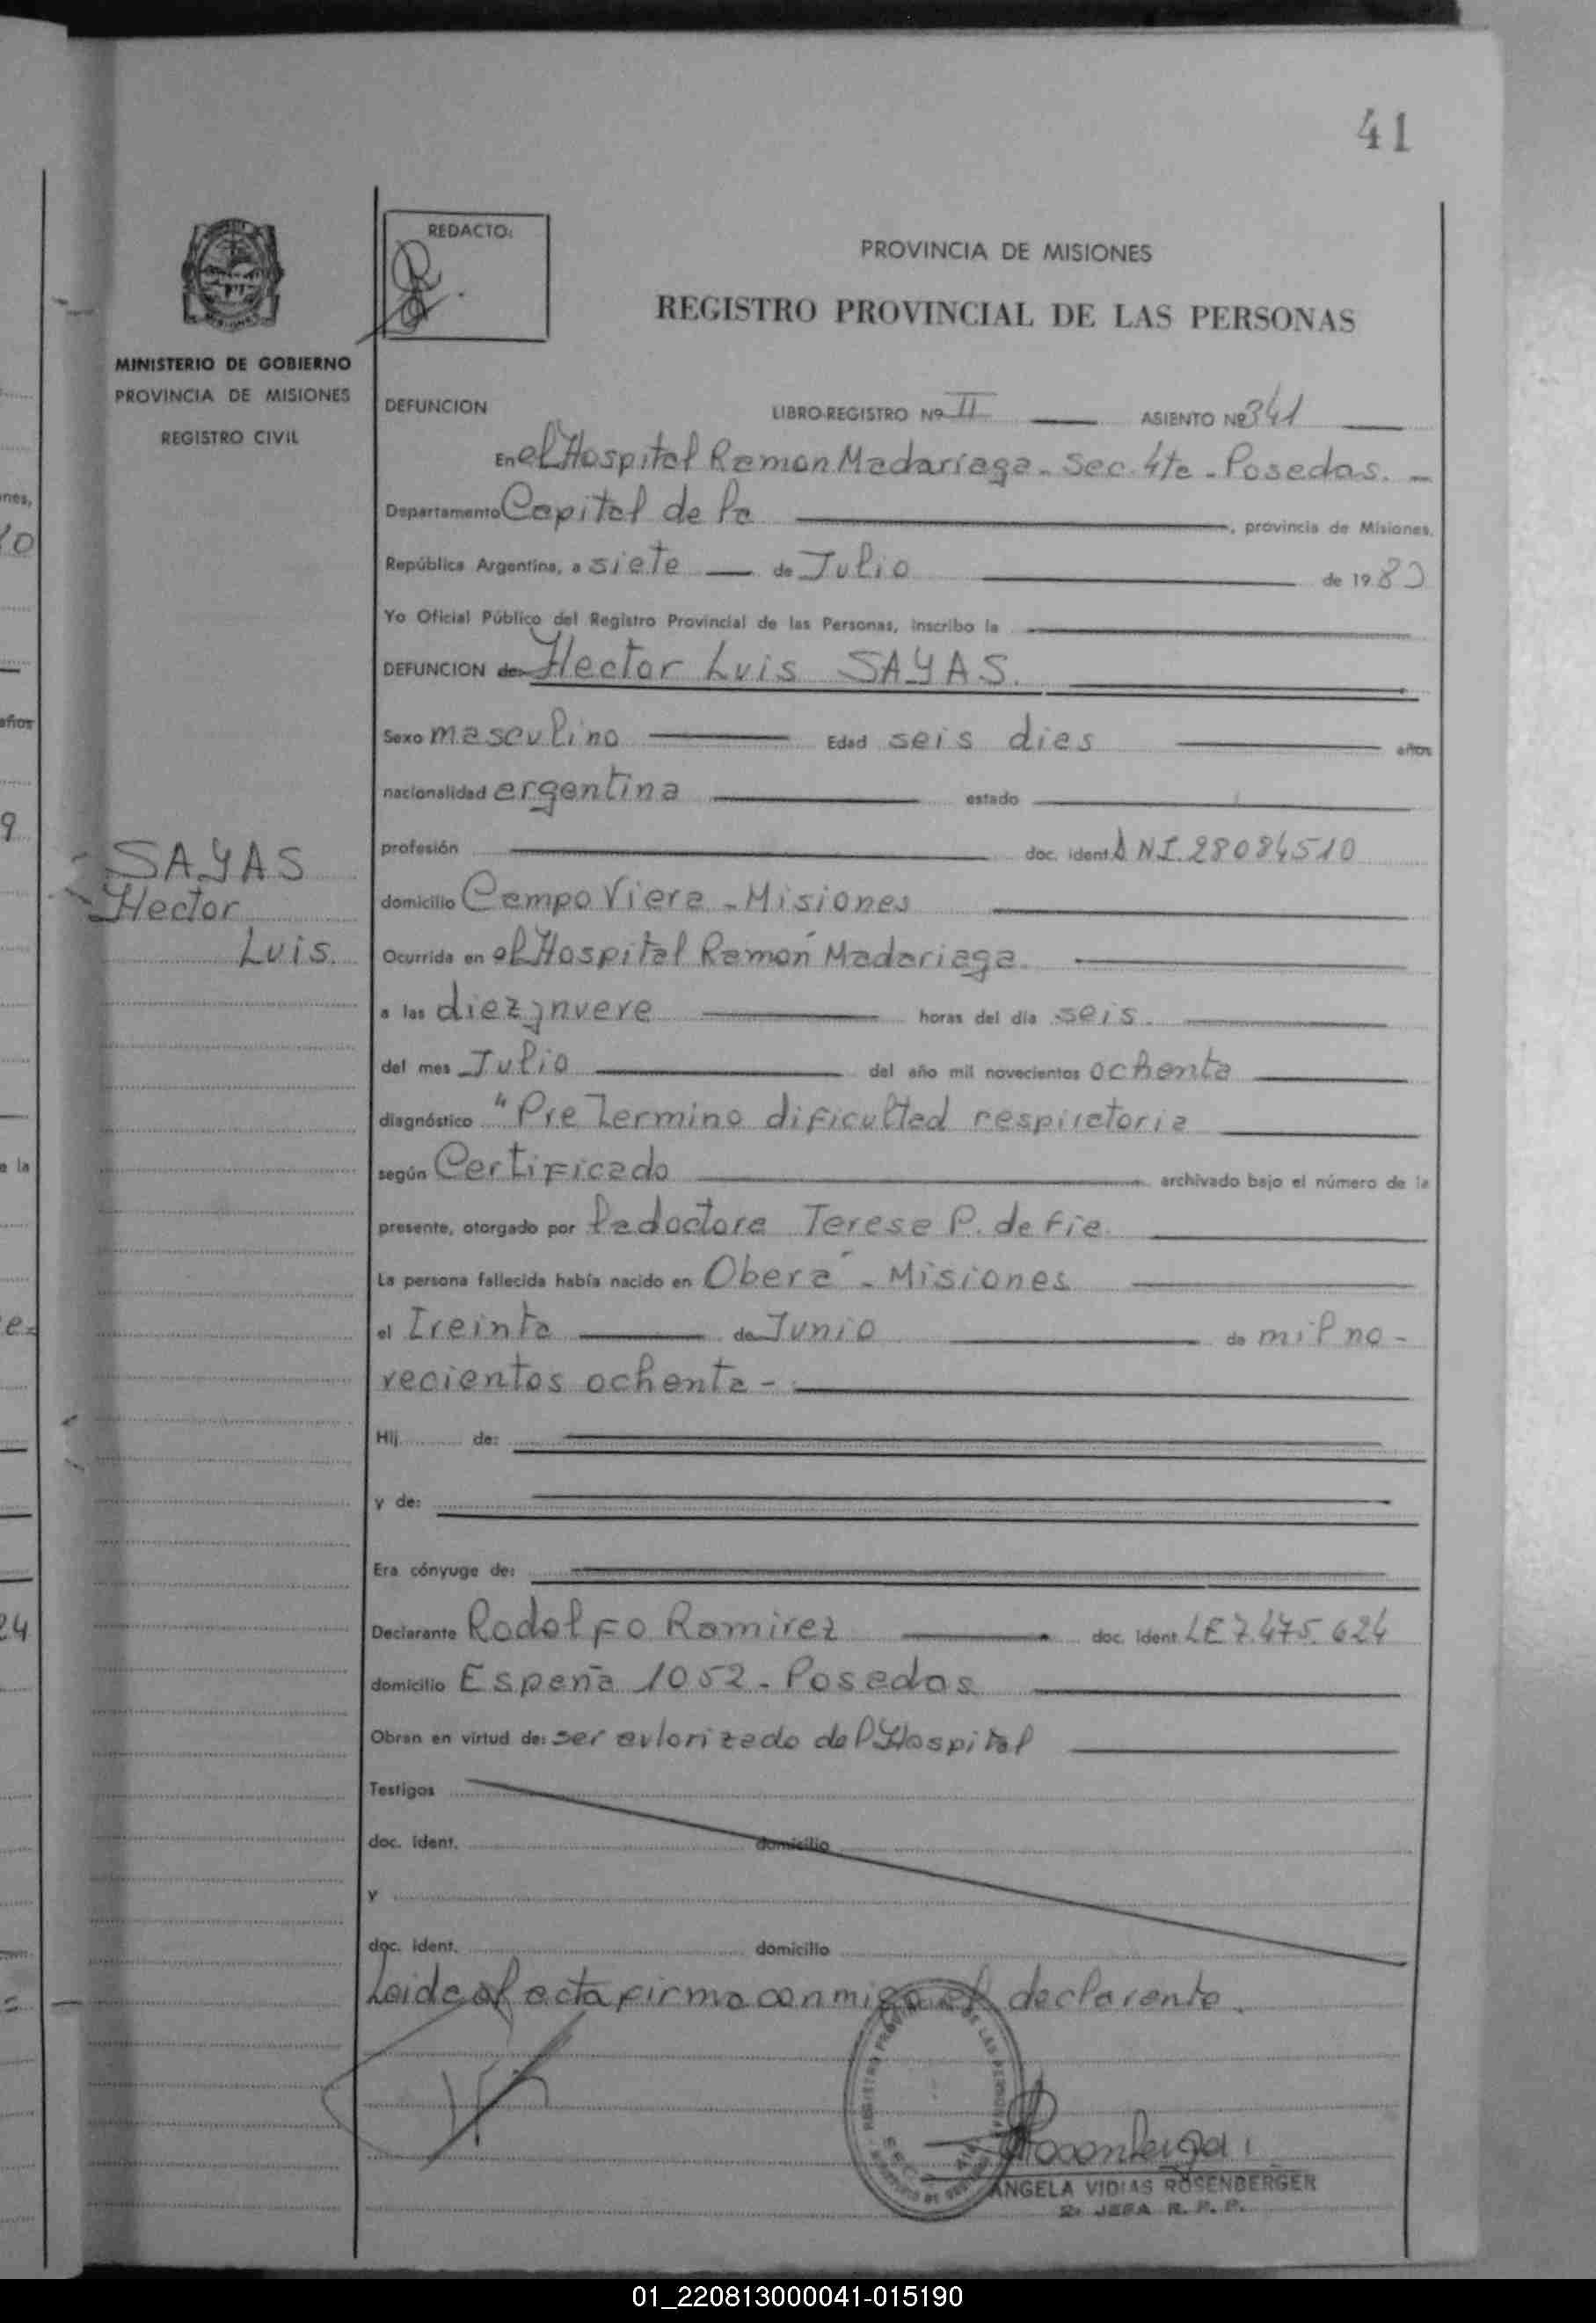 41
REDACTO:
PROVINCIA DE MISIONES
REGISTRO PROVINCIAL DE LAS PERSONAS
MINISTERIO DE GOBIERNO
PROVINCIA DE MISIONES
REGISTRO CIVIL
DEFUNCION LIBRO-REGISTRO Nº II ASIENTO Nº 341
En el Hospital Ramon Madariaga - Sec. 4ta - Posadas. -
Departamento Capital de la , provincia de Misiones.
República Argentina, a siete de Julio de 1980
Yo Oficial Público del Registro Provincial de las Personas, inscribo la
DEFUNCION de: Hector Luis SAYAS.
Sexo masculino Edad seis dias años
nacionalidad argentina estado
profesión doc. ident. DNI. 28084510
SAYAS
Hector
Luis.
domicilio Campo Viera - Misiones
Ocurrida en el Hospital Ramón Madariaga.
a las diezynueve horas del día seis.
del mes Julio del año mil novecientos ochenta
diagnóstico "Pretermino dificultad respiratoria
según Certificado archivado bajo el número de la
presente, otorgado por la doctora Teresa P. de Fia.
La persona fallecida había nacido en Oberá - Misiones
el Treinta de Junio de mil no-
vecientos ochenta -
Hij de:
y de:
Era cónyuge de:
Declarante Rodolfo Ramirez doc. ident. LE 7.475.624
domicilio España 1052 - Posadas
Obran en virtud de: ser autorizado del Hospital
Testigos
doc. ident. domicilio
y
doc. ident. domicilio
Leida el acta firma conmigo el declarante.
ANGELA VIDIAS ROSENBERGER
2ª JEFA R. P. P.
01_220813000041-015190